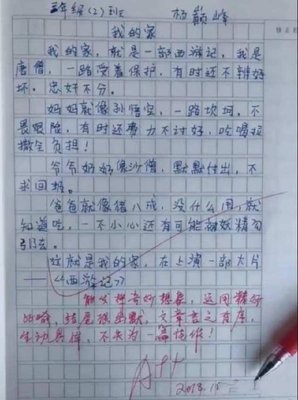 三年级(2)班 杨巅峰
我的家
我的家,就是一部西游记,我是
唐僧,一路受着保护,有时还不辨好
坏。忠奸不分。
妈妈就像孙悟空,一路坎坷。不
畏艰险,有时还费力不讨好,吃喝拉
撒全负担!
爷爷奶奶像沙僧,默默付出,不
求回报。
爸爸就像猪八戒,没什么用,就
知道吃,一不小心还有可能被妖精勾
引去。
这就是我的家,在上演一部大片
——《西游记》
能发挥奇妙想象,运用精妙
比喻,结尾很幽默,文章言之有序,
生动具体,不失为一篇佳作!
A++
2013.10